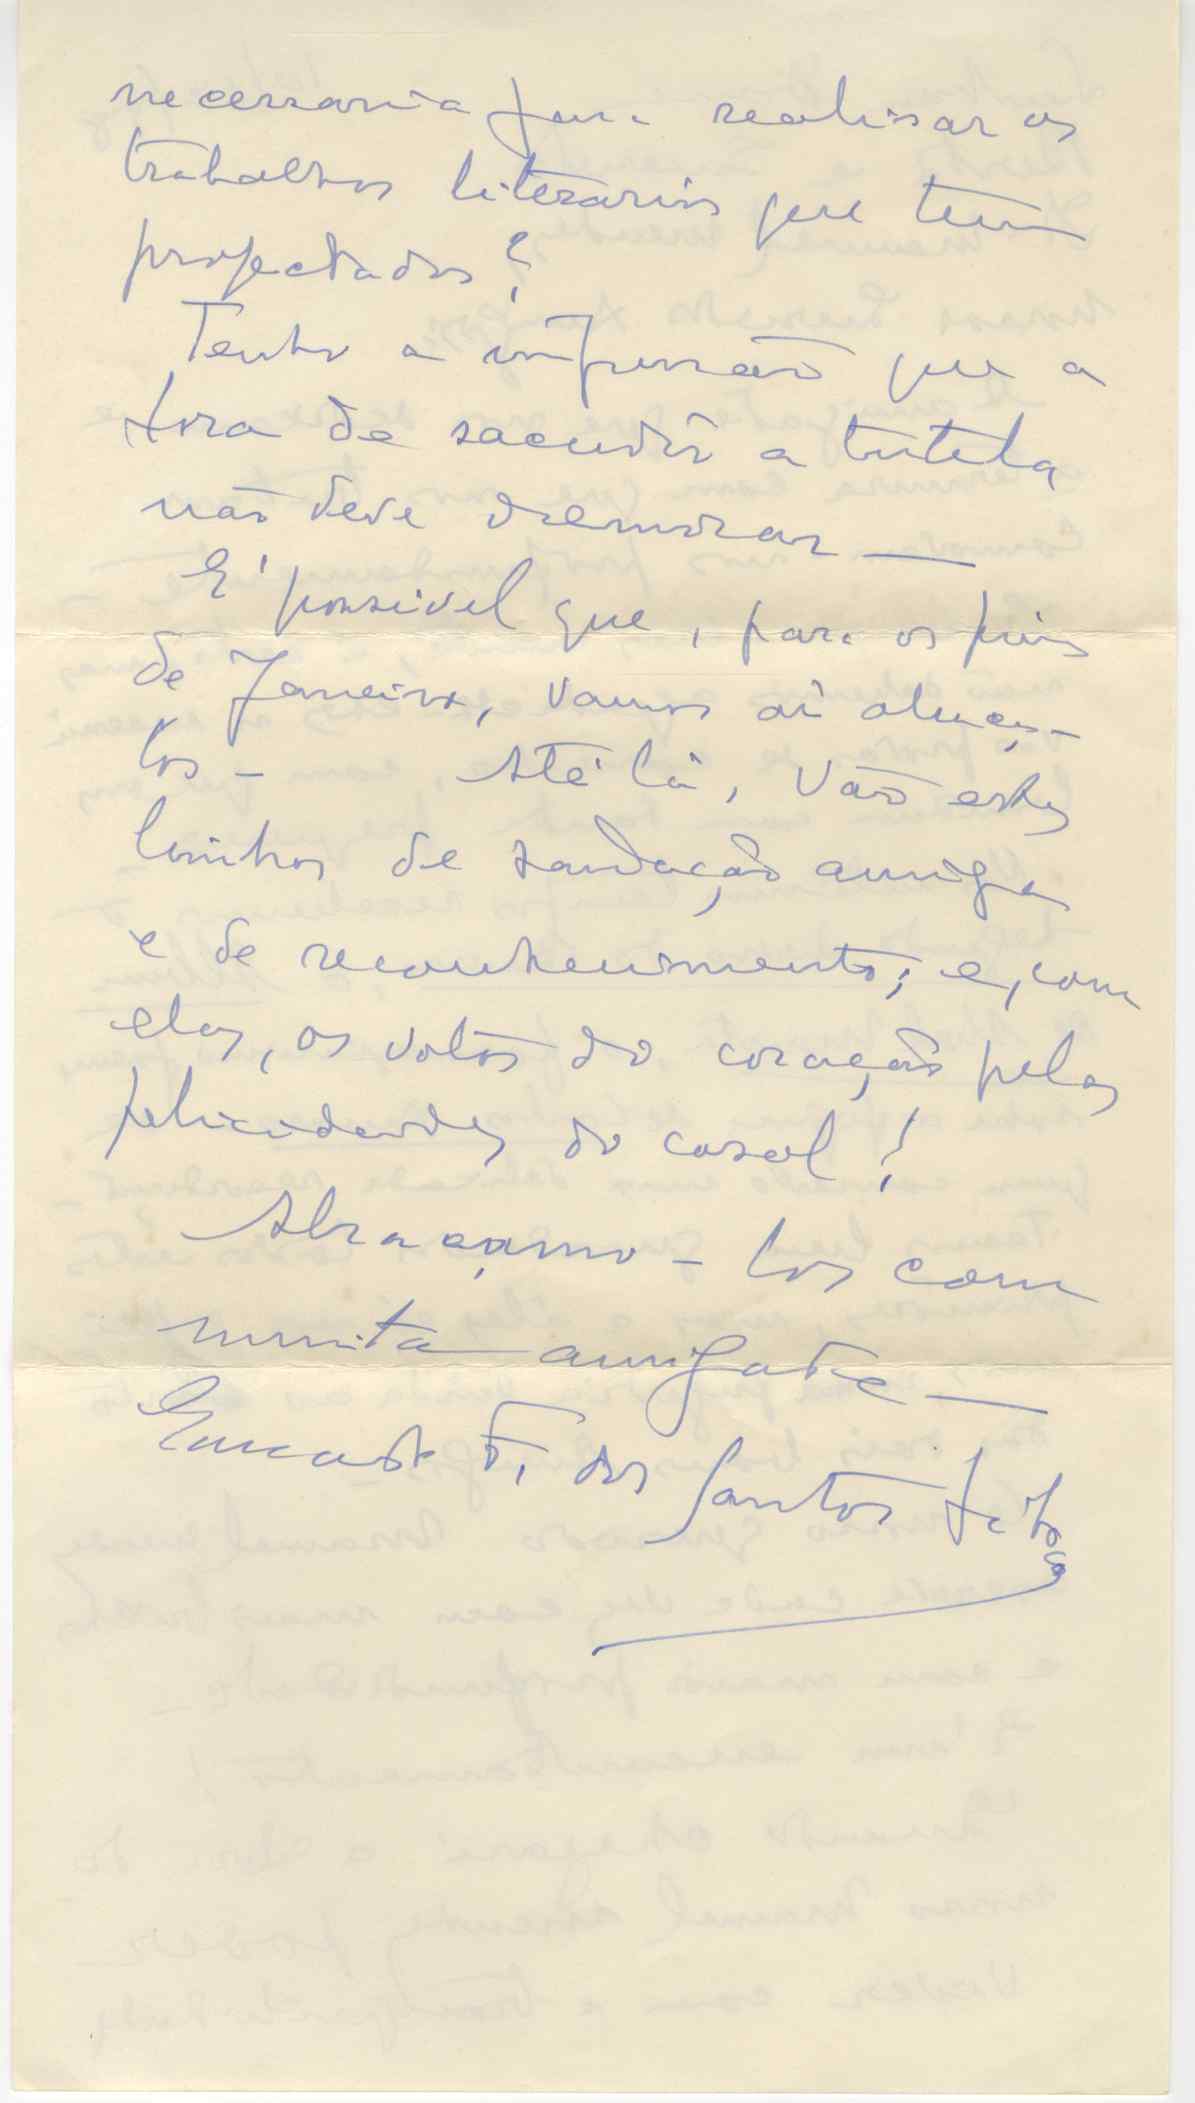 necessaria para realisar os
trabalhos literarios que tem
projectados?
Tenho a impressão que a
hora de sacudir a tutela
não deve demorar —
É possivel que, para os fins
de Janeiro, vamos aí abraça-
los - Até lá, vão estas
linhas de saudação amiga
e de reconhecimento; e, com
elas, os votos do coração pelas
felicidades do casal!
Abraçamo-los com
muita amizade —
F. dos Santos